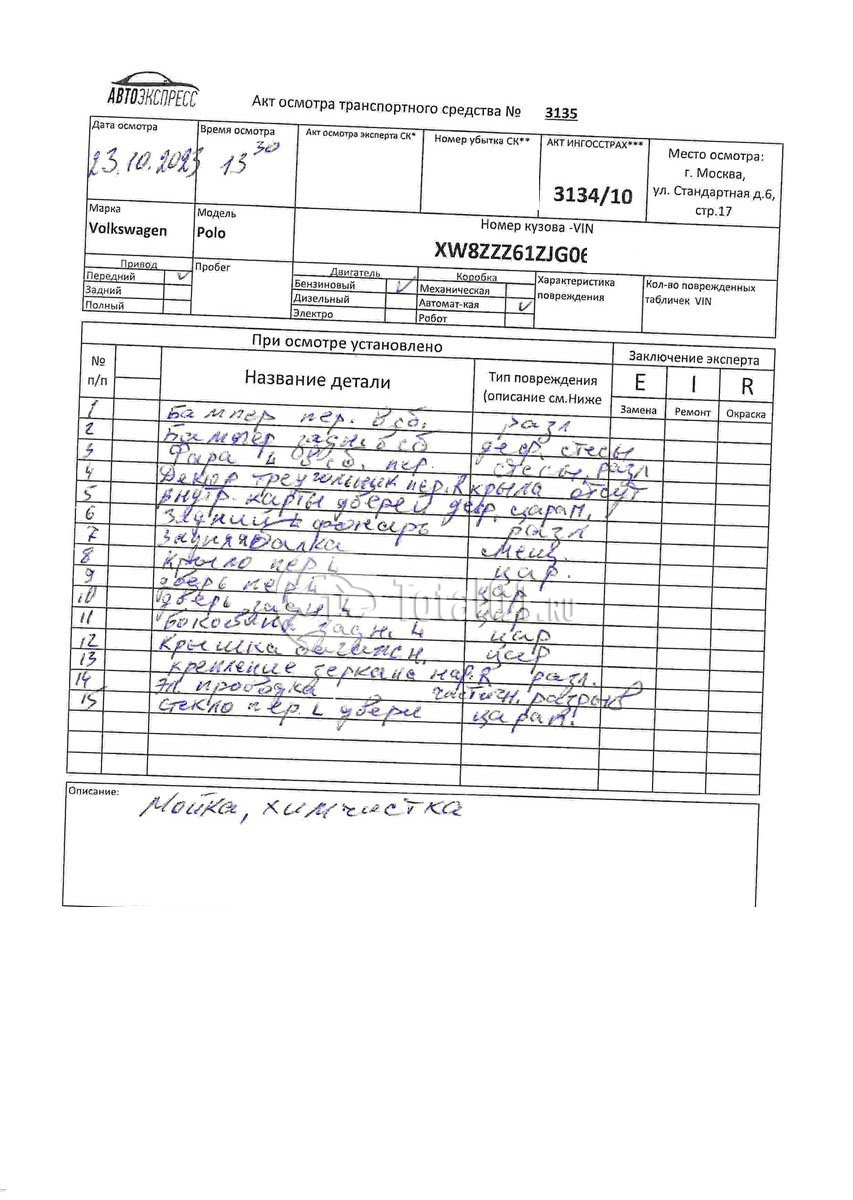 АВТОЭКСПРЕСС
Акт осмотра транспортного средства № 3135
Дата осмотра
23.10.2023
Время осмотра
13 30
Акт осмотра эксперта СК*
Номер убытка СК**
АКТ ИНГОССТРАХ***
3134/10
Место осмотра:
г. Москва,
ул. Стандартная д.6,
стр.17
Марка
Volkswagen
Модель
Polo
Номер кузова -VIN
XW8ZZZ61ZJG06
Привод
Передний
Задний
Полный
Пробег
Двигатель
Бензиновый
Дизельный
Электро
Коробка
Механическая
Автомат-кая
Робот
Характеристика
повреждения
Кол-во поврежденных
табличек VIN
При осмотре установлено
Заключение эксперта
№
п/п
Название детали
Тип повреждения
(описание см.Ниже
E I R
Замена Ремонт Окраска
1 Бампер пер. в сб. разл
2 Бампер задн в сб деф. стесы
3 Фара L в сб. пер. стесы, разл
4 Декор треугольник пер. R крыла отсут
5 внутр. карты дверей деф. царап.
6 Задний L фонарь разл
7 Задняя балка смещ.
8 крыло пер L цар.
9 дверь пер L цар
10 дверь задн L цар
11 боковина задн. L цар
12 крышка багажн. цар
13 крепление зеркала нар. R разл.
14 эл проводка частичн. разрыв
15 стекло пер. L двери царап.
Описание:
Мойка, химчистка
Total.RU